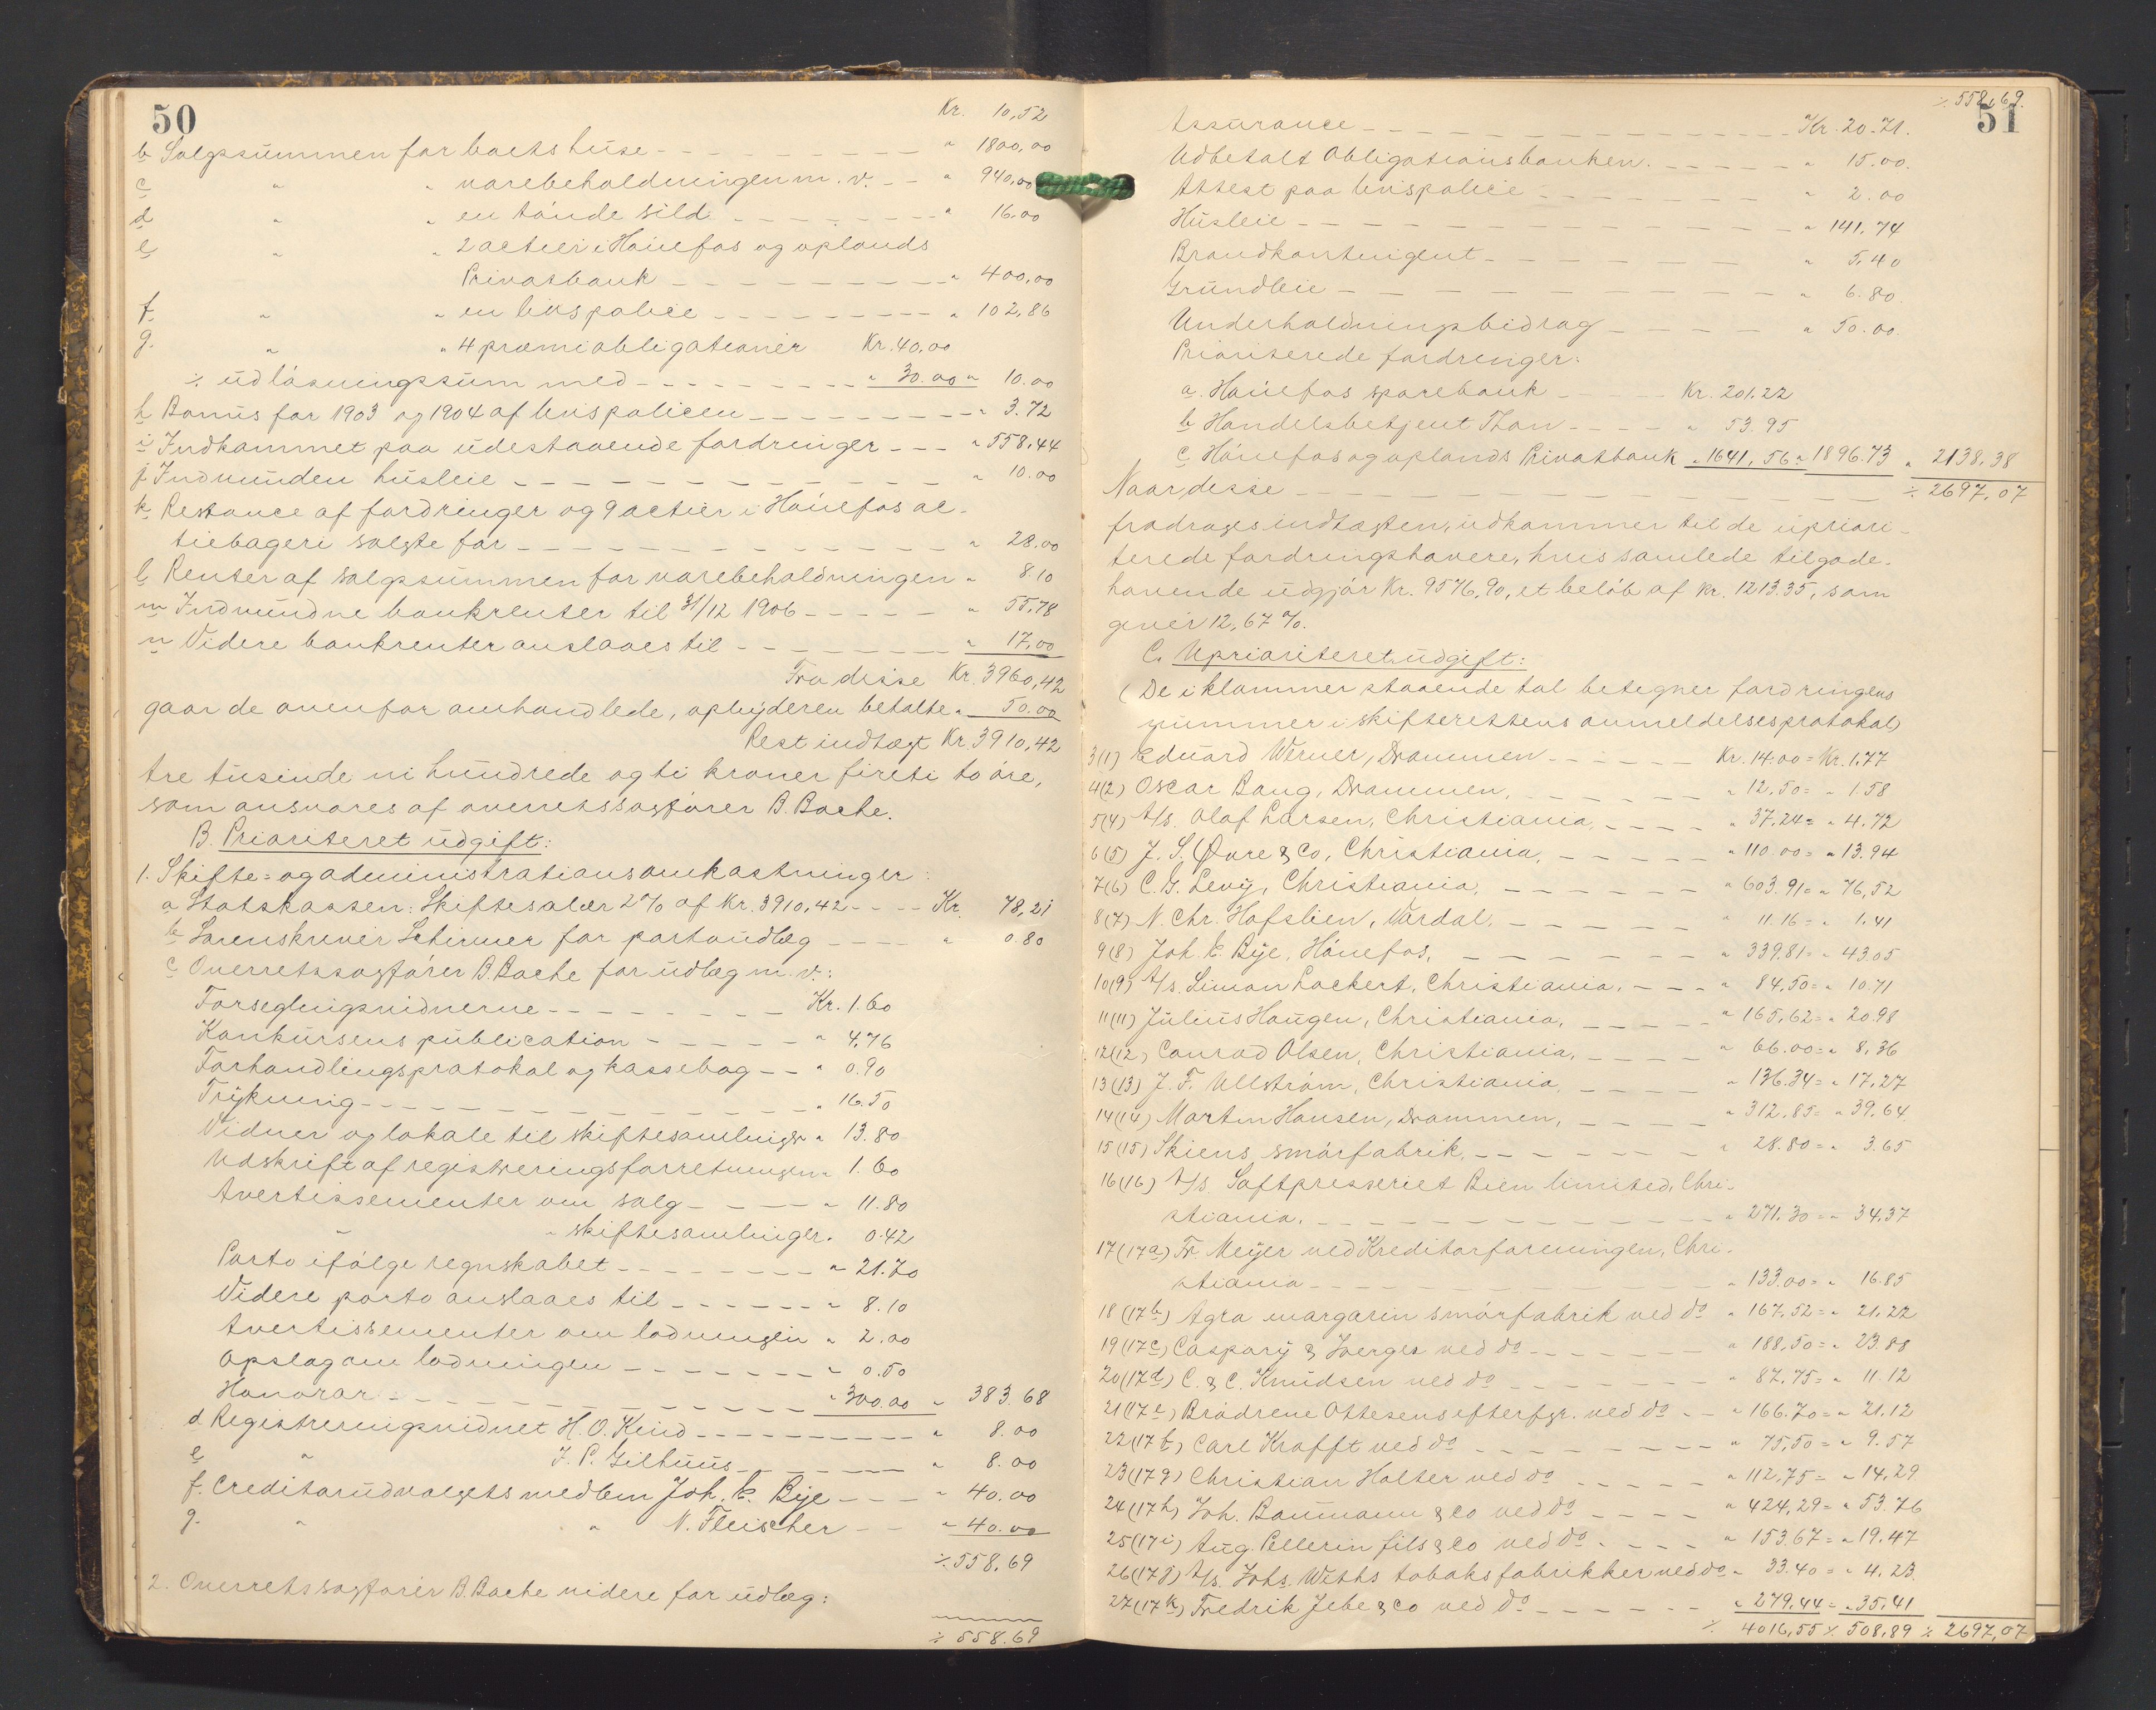 50
Kr. 10,52
b Salgssummen for boets huse - - - " 1800,00
c " " varebeholdningen m. v. - - " 940,00
d " " en tønde sild - - - " 16.00
e " " 2 actier i Hønefos og oplands
Privatbank - - - " 400,00
f. " " en livspolice - - - " 102,86
g. " " 4 præmieobligationer Kr. 40,00
÷ udløsningssum med - - - " 30.00 " 10.00
h Bonus for 1903 og 1904 af livspolicen - - - " 3.72
i Indkommet paa udestaaende fordringer - - - " 558,44
j. Indvunden husleie - - - " 10.00
k Restance af fordringer og 9 actier i Hønefos ac-
tiebageri solgte for - - - " 28.00
l Renter af salgssummen for varebeholdningen " 8.10
m Indvundne bankrenter til 31/12 1906 - - - " 55,78
n Videre bankrenter anslaaes til - - - " 17,00
Fra disse Kr. 3960,42
gaar de ovenfor omhandlede, opbyderen betalte " 50.00
Rest indtægt Kr. 3910,42
tre tusinde ni hundrede og ti kroner firti to øre,
som ansvares af overretssagfører B. Bache.
B. Prioriteret udgift:
1. Skifte- og administrationsomkostninger:
a Statskassen: Skiftesalær 2% af Kr. 3910,42 - - - Kr. 78,21
b Sorenskriver Schirmer for portoudlæg - - - " 0.80
c Overretssagfører B. Bache for udlæg m. v.:
Forseglingsvidnerne - - - Kr. 1.60
Konkursens publication - - - " 4,76
Forhandlingsprotokol og kassebog - - " 0.90
Trykning - - - " 16.50
Vidner og lokale til skiftesamlinger " 13.80
Udskrift af registreringsforretningen " 1.60
Avertissementer om salg - - - " 11.80
" " skiftesamlinger " 0.42
Porto ifølge regnskabet - - - " 21.70
Videre porto anslaaes til - - - " 8.10
Avertissementer om lodningen " 2.00
Opslag om lodningen - - - " 0.50
Honorar - - - " 300.00 " 383.68
d Registreringsvidnet H. O. Kind - - - " 8.00
e " J. P. Gilhuus - - - " 8.00
f. Creditorudvalgets medlem Joh. E. Bye - - - " 40.00
g. " " N. Fleischer - - " 40.00
÷ 558,69
2. Overretssagfører B. Bache videre for udlæg:
÷ 558.69
÷ 558,69.
51
Assurance - - - Kr. 20.21.
Udbetalt Obligationsbanken. - - - " 15.00.
Attest paa livspolice - - - " 2.00
Husleie - - - " 141,74
Brandkontingent - - - " 5,40
Grundleie - - - " 6.80.
Underholdningsbidrag - - - " 50.00.
Prioriterede fordringer:
a. Hønefos sparebank - - - Kr. 201.22
b Handelsbetjent Thon - - - " 53.95
c Hønefos og oplands Privatbank " 1641,56 " 1896.73 " 2138,38
Naar disse - - - ÷ 2697,07
fradrages indtægten, udkommer til de upriori-
terede fordringshavere, hvis samlede tilgode-
havende udgjør Kr. 9576,90, et beløb af Kr. 1213.35, som
giver 12,67 %.
C. Uprioriteret udgift:
(De i klammer staaende tal betegner fordringens
nummer i skifterettens anmeldelsesprotokol)
3(1) Eduard Werner, Drammen - - - Kr. 14.00 = Kr. 1,77
4(2) Oscar Bang, Drammen, - - - " 12,50 = " 1.58
5(4) A/s. Olaf Larsen, Christiania - - - " 37,24 = " 4.72
6(5) J. S. Øvre & Co, Christiania, - - - " 110.00 = " 13.94
7(6) C. G. Levy, Christiania, - - - " 603.91 = " 76,52
8(7) N. Chr. Hofslien, Vardal. - - - " 11.16 = " 1.41
9(8) Joh. E. Bye, Hønefos, - - - " 339.81 = " 43.05
10(9) A/s. Simon Lockert, Christiania, - - - " 84,50 = " 10.71
11(11) Julius Haugen, Christiania, - - - " 165,62 = " 20.98
12(12) Conrad Olsen, Christiania, - - - " 66.00 = " 8,36
13(13) J. F. Ullstrøm, Christiania - - - " 136.34 = " 17,27
14(14) Martin Hansen, Drammen, - - - " 312.85 = " 39,64.
15(15) Skiens smørfabrik, - - - " 28.80 = " 3.65
16(16) A/s. Saftpresseriet Bien limited, Chri-
stiania. - - - " 271.30 = " 34.37
17(17a) Fr. Meyer ved Kreditorforeningen, Chri-
stiania - - - " 133.00 = " 16.85
18(17b) Agra margarin smørfabrik ved do " 167,52 = " 21,22
19(17c) Caspary & ved do - - - " 188,50 = " 23.88
20(17d) C. & C. Knudsen ved do - - - " 87,75 = " 11.12
21(17e) Brødrene Ottesens efterfgr. ved do - - " 166.70 = " 21.12
22(17f) Carl Krafft ved do - - - " 75,50 = " 9.57
23(17g) Christian Holter ved do - - - " 112,75 = " 14,29
24(17h) Joh. Baumann & Co ved do - - - " 424,29 = " 53.76
25(17i) Aug. Pellerin fils & Co ved do - - - " 153.67 = " 19.47
26(17j) A/s. Johs. Withs tobaksfabrikker ved do " 33.40 = " 4.23.
27(17k) Fredrik Jebe & Co ved do - - - " 279.44 = " 35,41
÷ 4016,55 ÷ 508,89 ÷ 2697,07